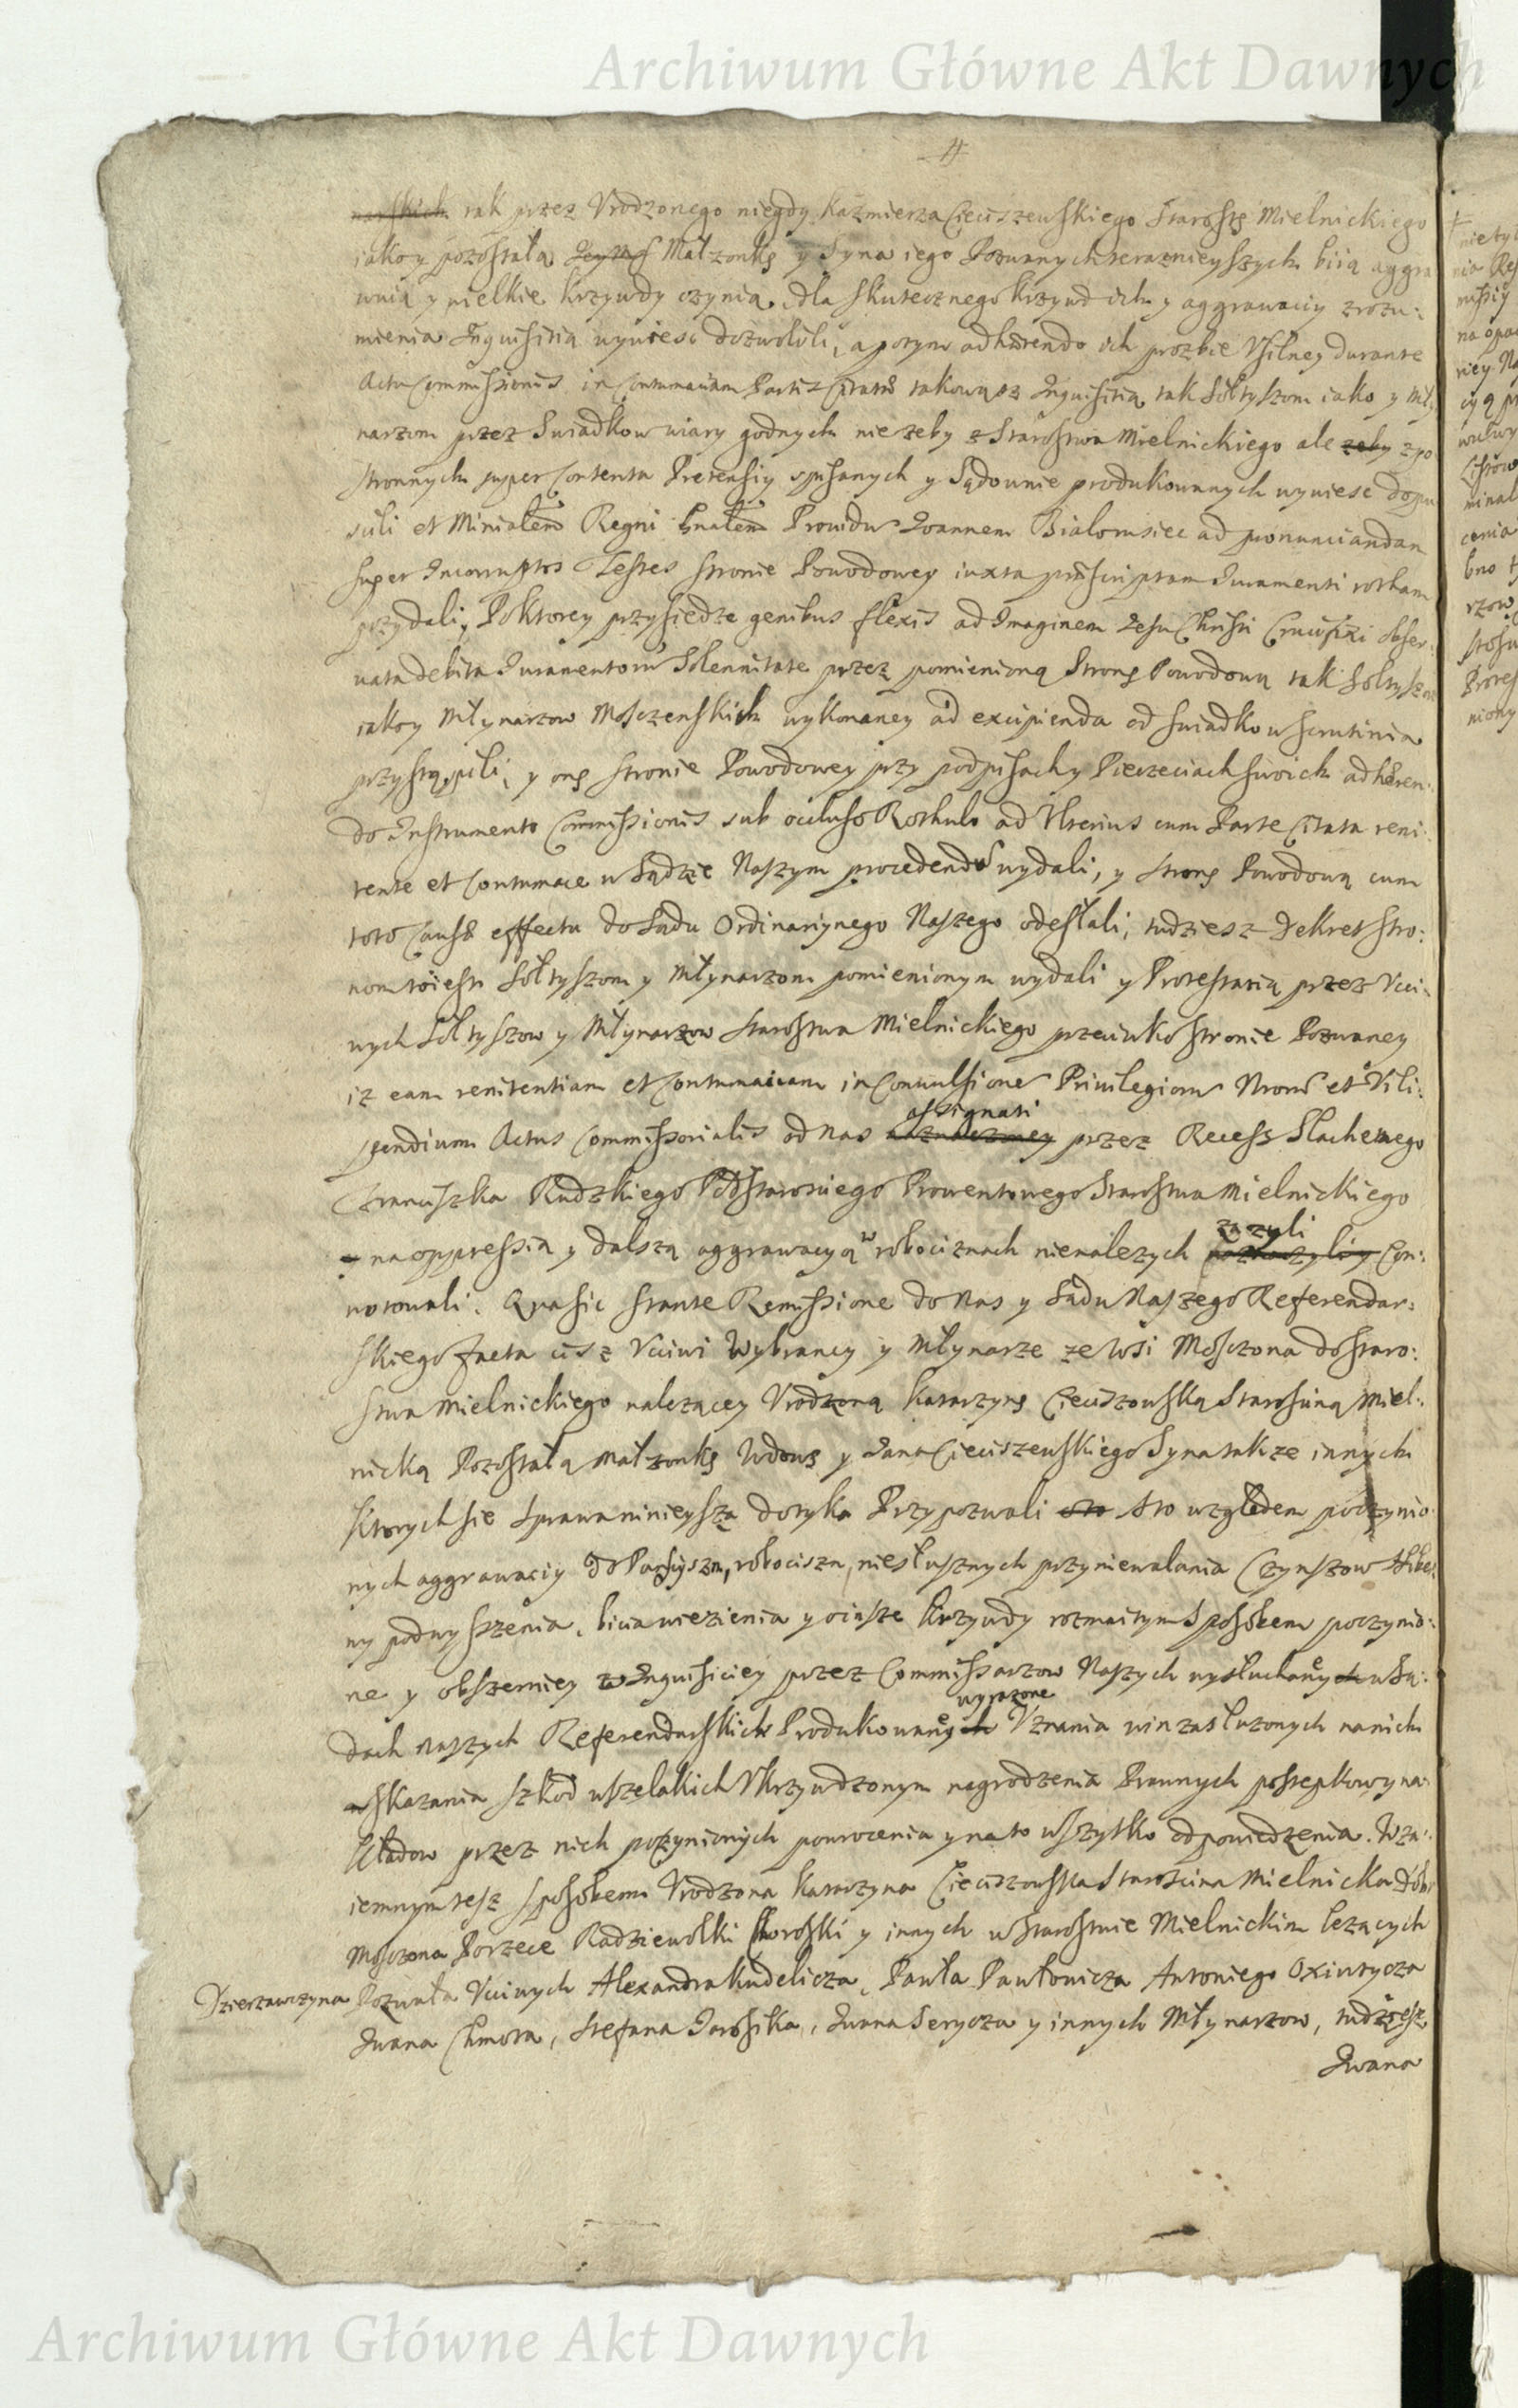 Archiwum Główne Akt Dawnych
#
narskich tak przez Vrodzonego niegdy Kazmierza Cieciszewskiego Starostę Mielnickiego
iako y pozostałą Małzonkę y Syna iego Pozwanych teraznieyszych biią aggra
wuią y wielkie krzywdy czynią, dla skutecznego krzywd ich y aggrawaciy zrozu:
mienia Inquisitią wywiesc dozwolili, a potym adhærendo ich prozbie Vsilney durante
Actu Commissionis in Contumaciam Partis Citatæ takowąsz Inquisitią tak Sołtyszom iako y Mły
narzom przez Swiadkow wiary godnych nie zeby z Starostwa Mielnickiego ale zeby z po
stronnych super Contenta Pretensiy spisanych y Sądownie produkowanych wywiesc dopu
scili et Ministem Regni Gnałem Prouidu Ioannem Bialomsiec ad pronunciandam
super Incorruptos Testes stronie Powodowey iuxta præscriptam Iuramenti rotham
przydali, Po ktorey przysiedze genibus flexis ad Imaginem Iesu Christi Crucifixi obser:
vata debita Iuramentoru Solennitate przez pomienioną Stronę Powodową tak Sołtyszow
iako y Młynarzow Moszczenskich wykonaney ad excipienda od swiadkow scrutinia
przystąpili, y onę stronie Powodowey przy podpisach y Pieczęciach swoich adhæren:
do Instrumento Commissionis sub occluso Rothulo ad Vlterius cum Parte Citata reni:
tente et Contumace w Sądzie Naszym procedendu wydali, y stronę Powodową cum
toto Causæ effectu do Sadu Ordinaryinego Naszego odesłali, tudziesz Dekret stro:
nom toiest Sołtyszom y Młynarzom pomienionym wydali y Protestatią przez Vcci:
wych Sołtyszow y Młynarzow Starostwa Mielnickiego przeciwko stronie Pozwaney
iz eam renitentiam et Contumaciam in Conuulsione Priuilegioru Nroru et Vili:
pendium Actus Commissorialis od Nas assignati przez Recess Slachetnego
Franciszka Rudzkiego Podstarosciego Prowentowego Starostwa Mielnickiego
na oppressią y dalszą aggrawacyą w robociznach nienalezych zazyli Con:
notowali. Qua sic stante Remissione do Nas y Sądu Naszego Referendar:
skiego facta cisz Vcciwi Wybrancy y Młynarze ze Wsi Moszczona do Staro:
stwa Mielnickiego nalezącey Vrodzoną Katarzynę Cieciszowską Starościną Miel:
nicką Pozostałą Małzonkę Wdowę y Jana Cieciszewskiego Syna takze innych
ktorych sie sprawa ninieysza dotyka Przypozwali o to względem poczynio
nych aggrawaciy do Panszyzn, robocizn, niesłusznych przyniewalania Czynszow Hiber
ny podwyszszenia, bicia wiezienia y insze krzywdy rozmaitym sposobem poczynio:
ne y obszerniey w Inquisiciey przez Commissarzow Naszych wysłuchaney w Są:
dach Naszych Referendarskich Produkowaney wyrazone Vznania win zasłuzonych na nich
wskazania szkod wszelakich Vkrzywdzonym nagrodzenia Prawnych postepkow y na:
kładow przez nich poczynionych powrocenia y na to wszytko odpowiedzenia. Wza:
iemnym tesz sposobem Vrodzona Katarzyna Cieciszowska Starościna Mielnicka dobr
Moszczona Borzece Radziewolki Choroski y innych w Starostwie Mielnickim lezących
Dzierzawczyna Pozwała Vcciwych Alexandra Kudelicza, Pawła Pawłowicza Antoniego Oxiutycza
Iwana Chmora, Stefana Jarosika, Iwana Serycza y innych Młynarzow, tudziesz
Iwana
Archiwum Główne Akt Dawnych